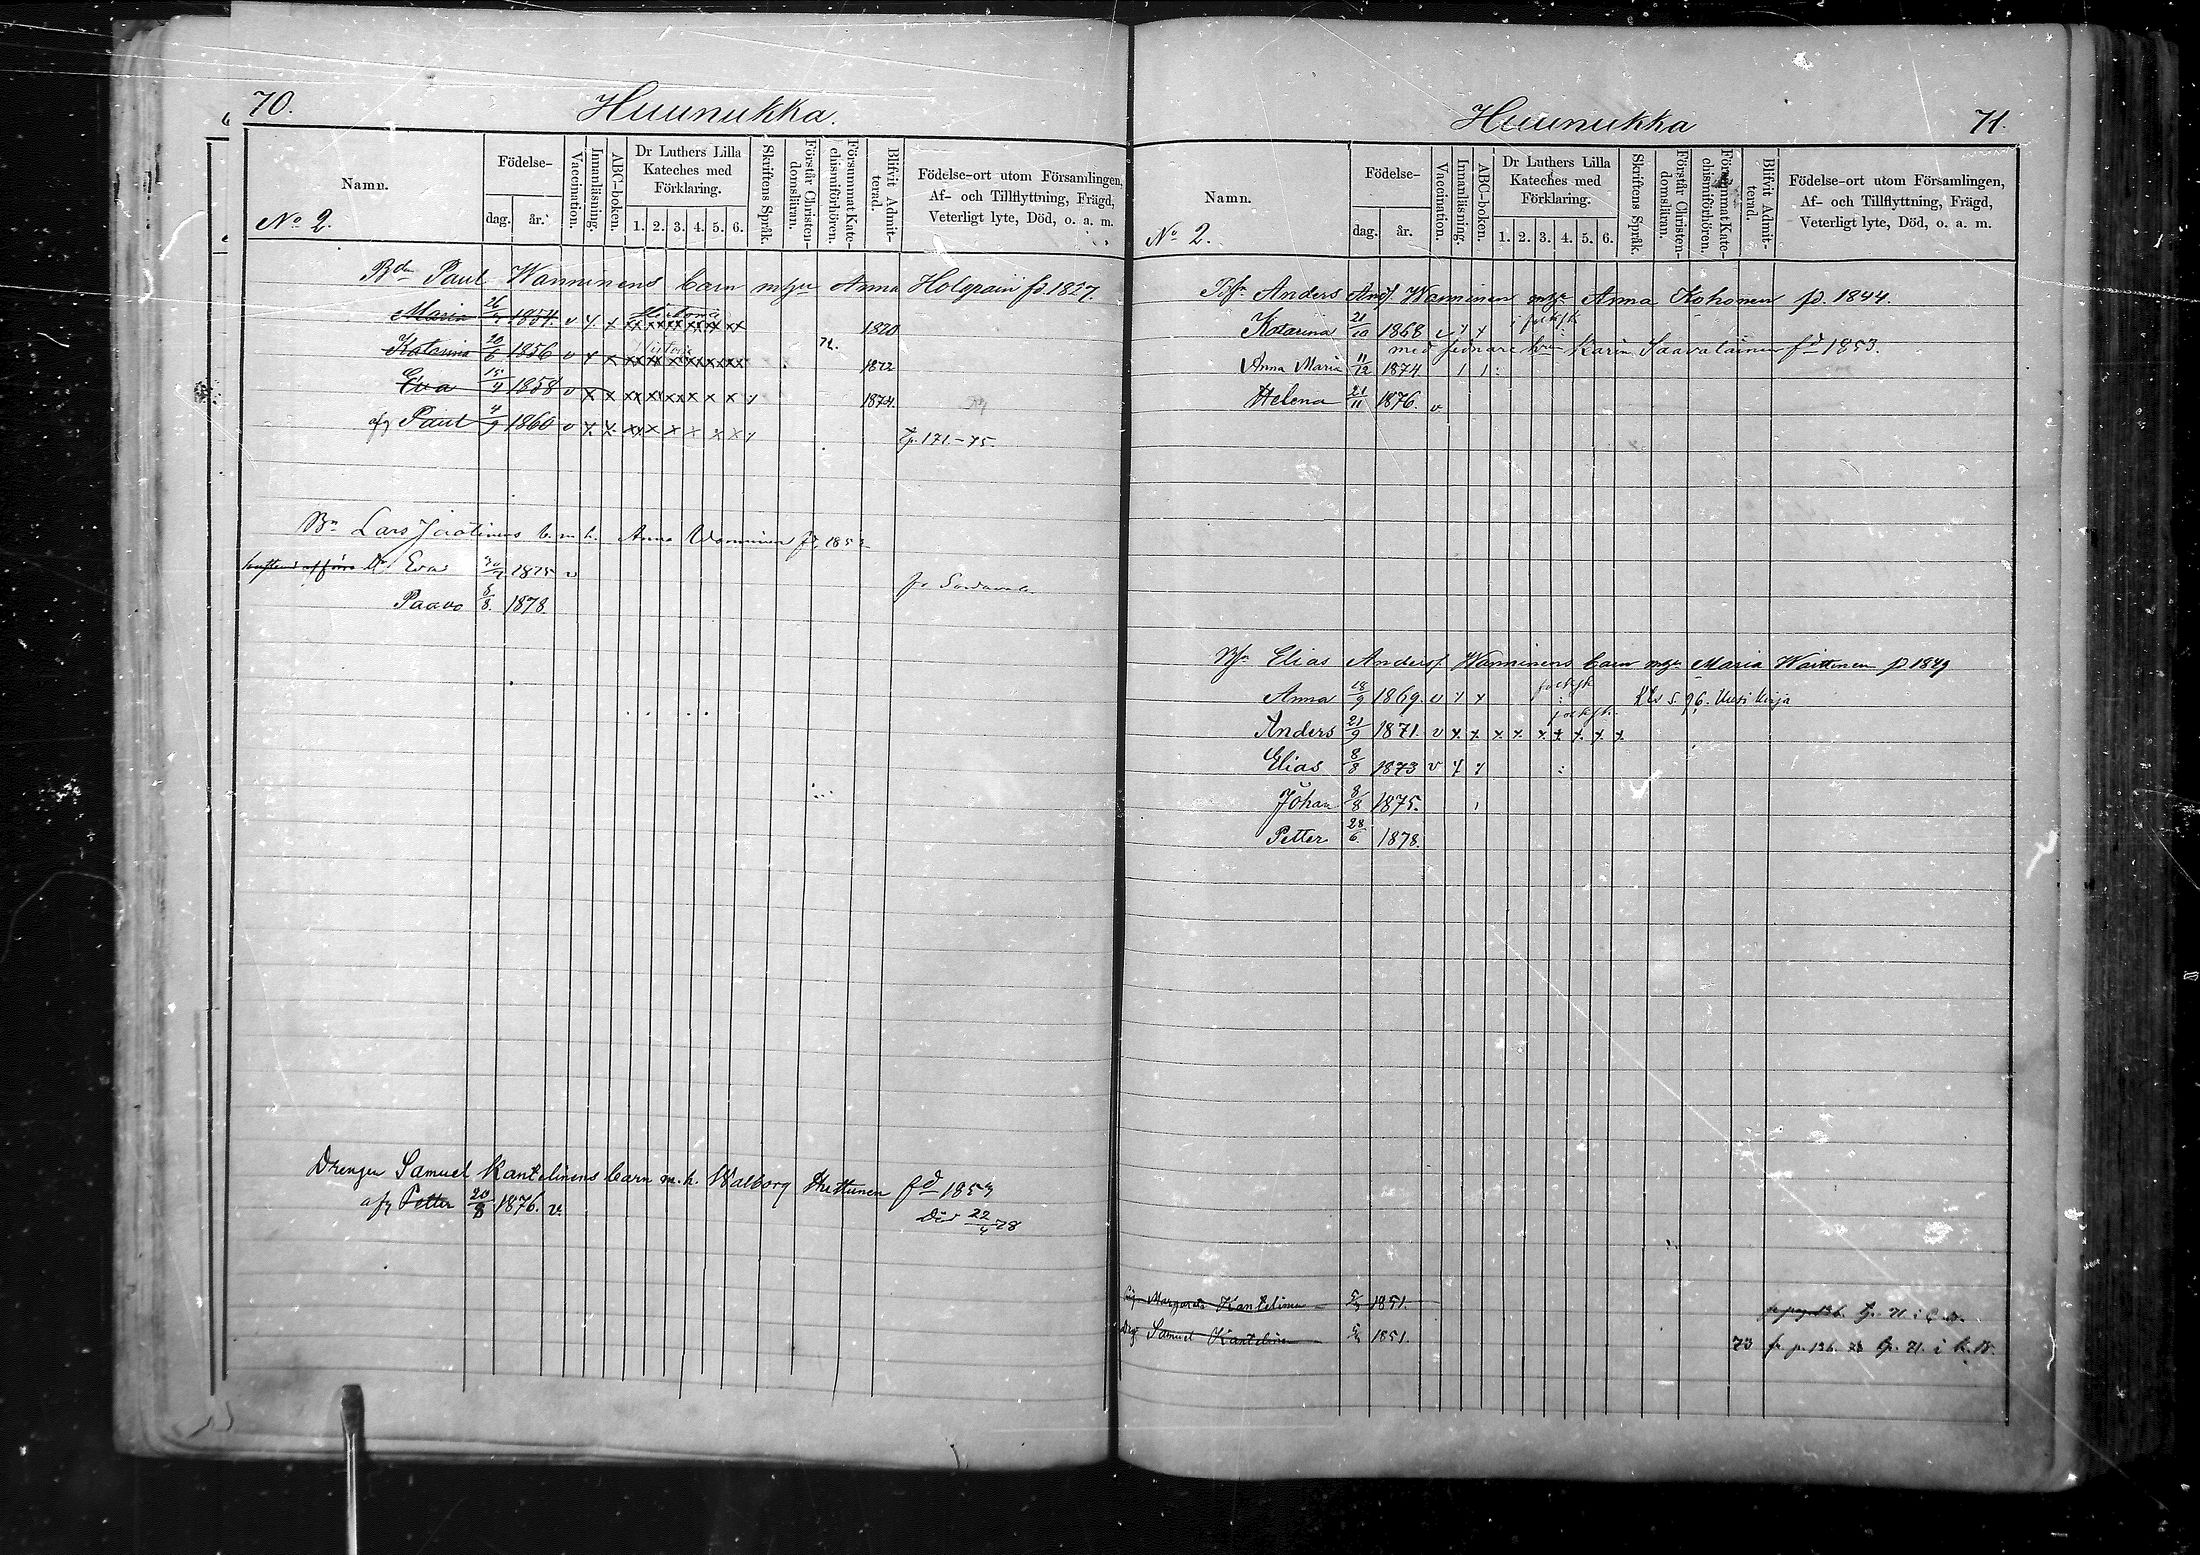 70.
Huunukka.
Namn.
Födelse-
dag.
år.
Vaccination.
Innanläsning.
ABC-boken.
Dr Luthers Lilla Kateches med Förklaring.
1. 2. 3. 4. 5. 6.
Skriftens Språk.
Förstår Christendomsläran.
Försummat Katechismiförhören.
Blifvit Admitterad.
Födelse-ort utom Församlingen,
Af- och Tillflyttning, Frägd,
Veterligt lyte, Död, o. a. m.
No 2.
Bdn Paul Wanninens barn m hu Anna Holopain fd. 1827.
Maria 26/4 1854. v x x xx xx xx xx xx xx 1870
Katarina 20/6 1856 v x x xx xx xx xx xx xx 1872
Eva 15/4 1858 v x x xx xx xx x x x 1874.
afg Paul 4/9 1860 v x x xx x x x x x T.p. 171.-75.
Bn Lars b. m. h. Anna Wanninen fd. 185
Dr Eva 1875 v fr Sordavala
Paavo 8/8. 1878
Drengen Samuel Kantelinens barn m. h. Walborg fd 1853
afg Petter 20/8 1876. v. Död 22/4 78
Huunukka
71.
Namn.
Födelse-
dag.
år.
Vaccination.
Innanläsning.
ABC-boken.
Dr Luthers Lilla Kateches med Förklaring.
1. 2. 3. 4. 5. 6.
Skriftens Språk.
Förstår Christendomsläran.
Försummat Katechismiförhören.
Blifvit Admitterad
Födelse-ort utom Församlingen,
Af- och Tillflyttning, Frägd,
Veterligt lyte, Död, o. a. m.
No 2.
Anders And. Wanninen Anna Kohonen fd. 1844.
Katarina 21/10 1868 v i folksk
med sednare hu Karin Saavalainen fd 1853.
Anna Maria 11/12 1874
Helena 21/11 1876. v
Elias Anders. Wanninens barn Maria Waittinen fd 1849
Anna 18/9 1869. v x x folksk s. 96. Uusi kirja
Anders 21/9 1871. v x x x x x x x x x folksk.
Elias 8/8 1873 v
Johan 8/8 1875.
Petter 28/6. 1878.
Margareta Kantelinen 1851.
Drg Samuel Kantelinen 1851. 73 fr p. 136.